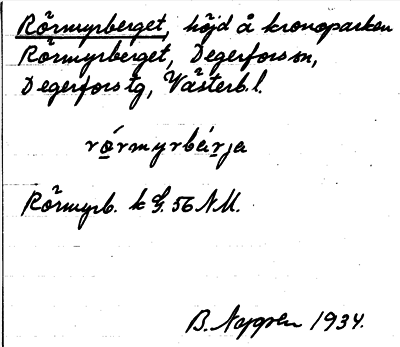 Rörmyrberget, höjd å kronoparken
Rörmyrberget, Degerfors sn,
Degerfors tg, Västerb. l.
rörmyrbárja
Rörmyrb. k G. 56 NM.
B. Nygren 1934.